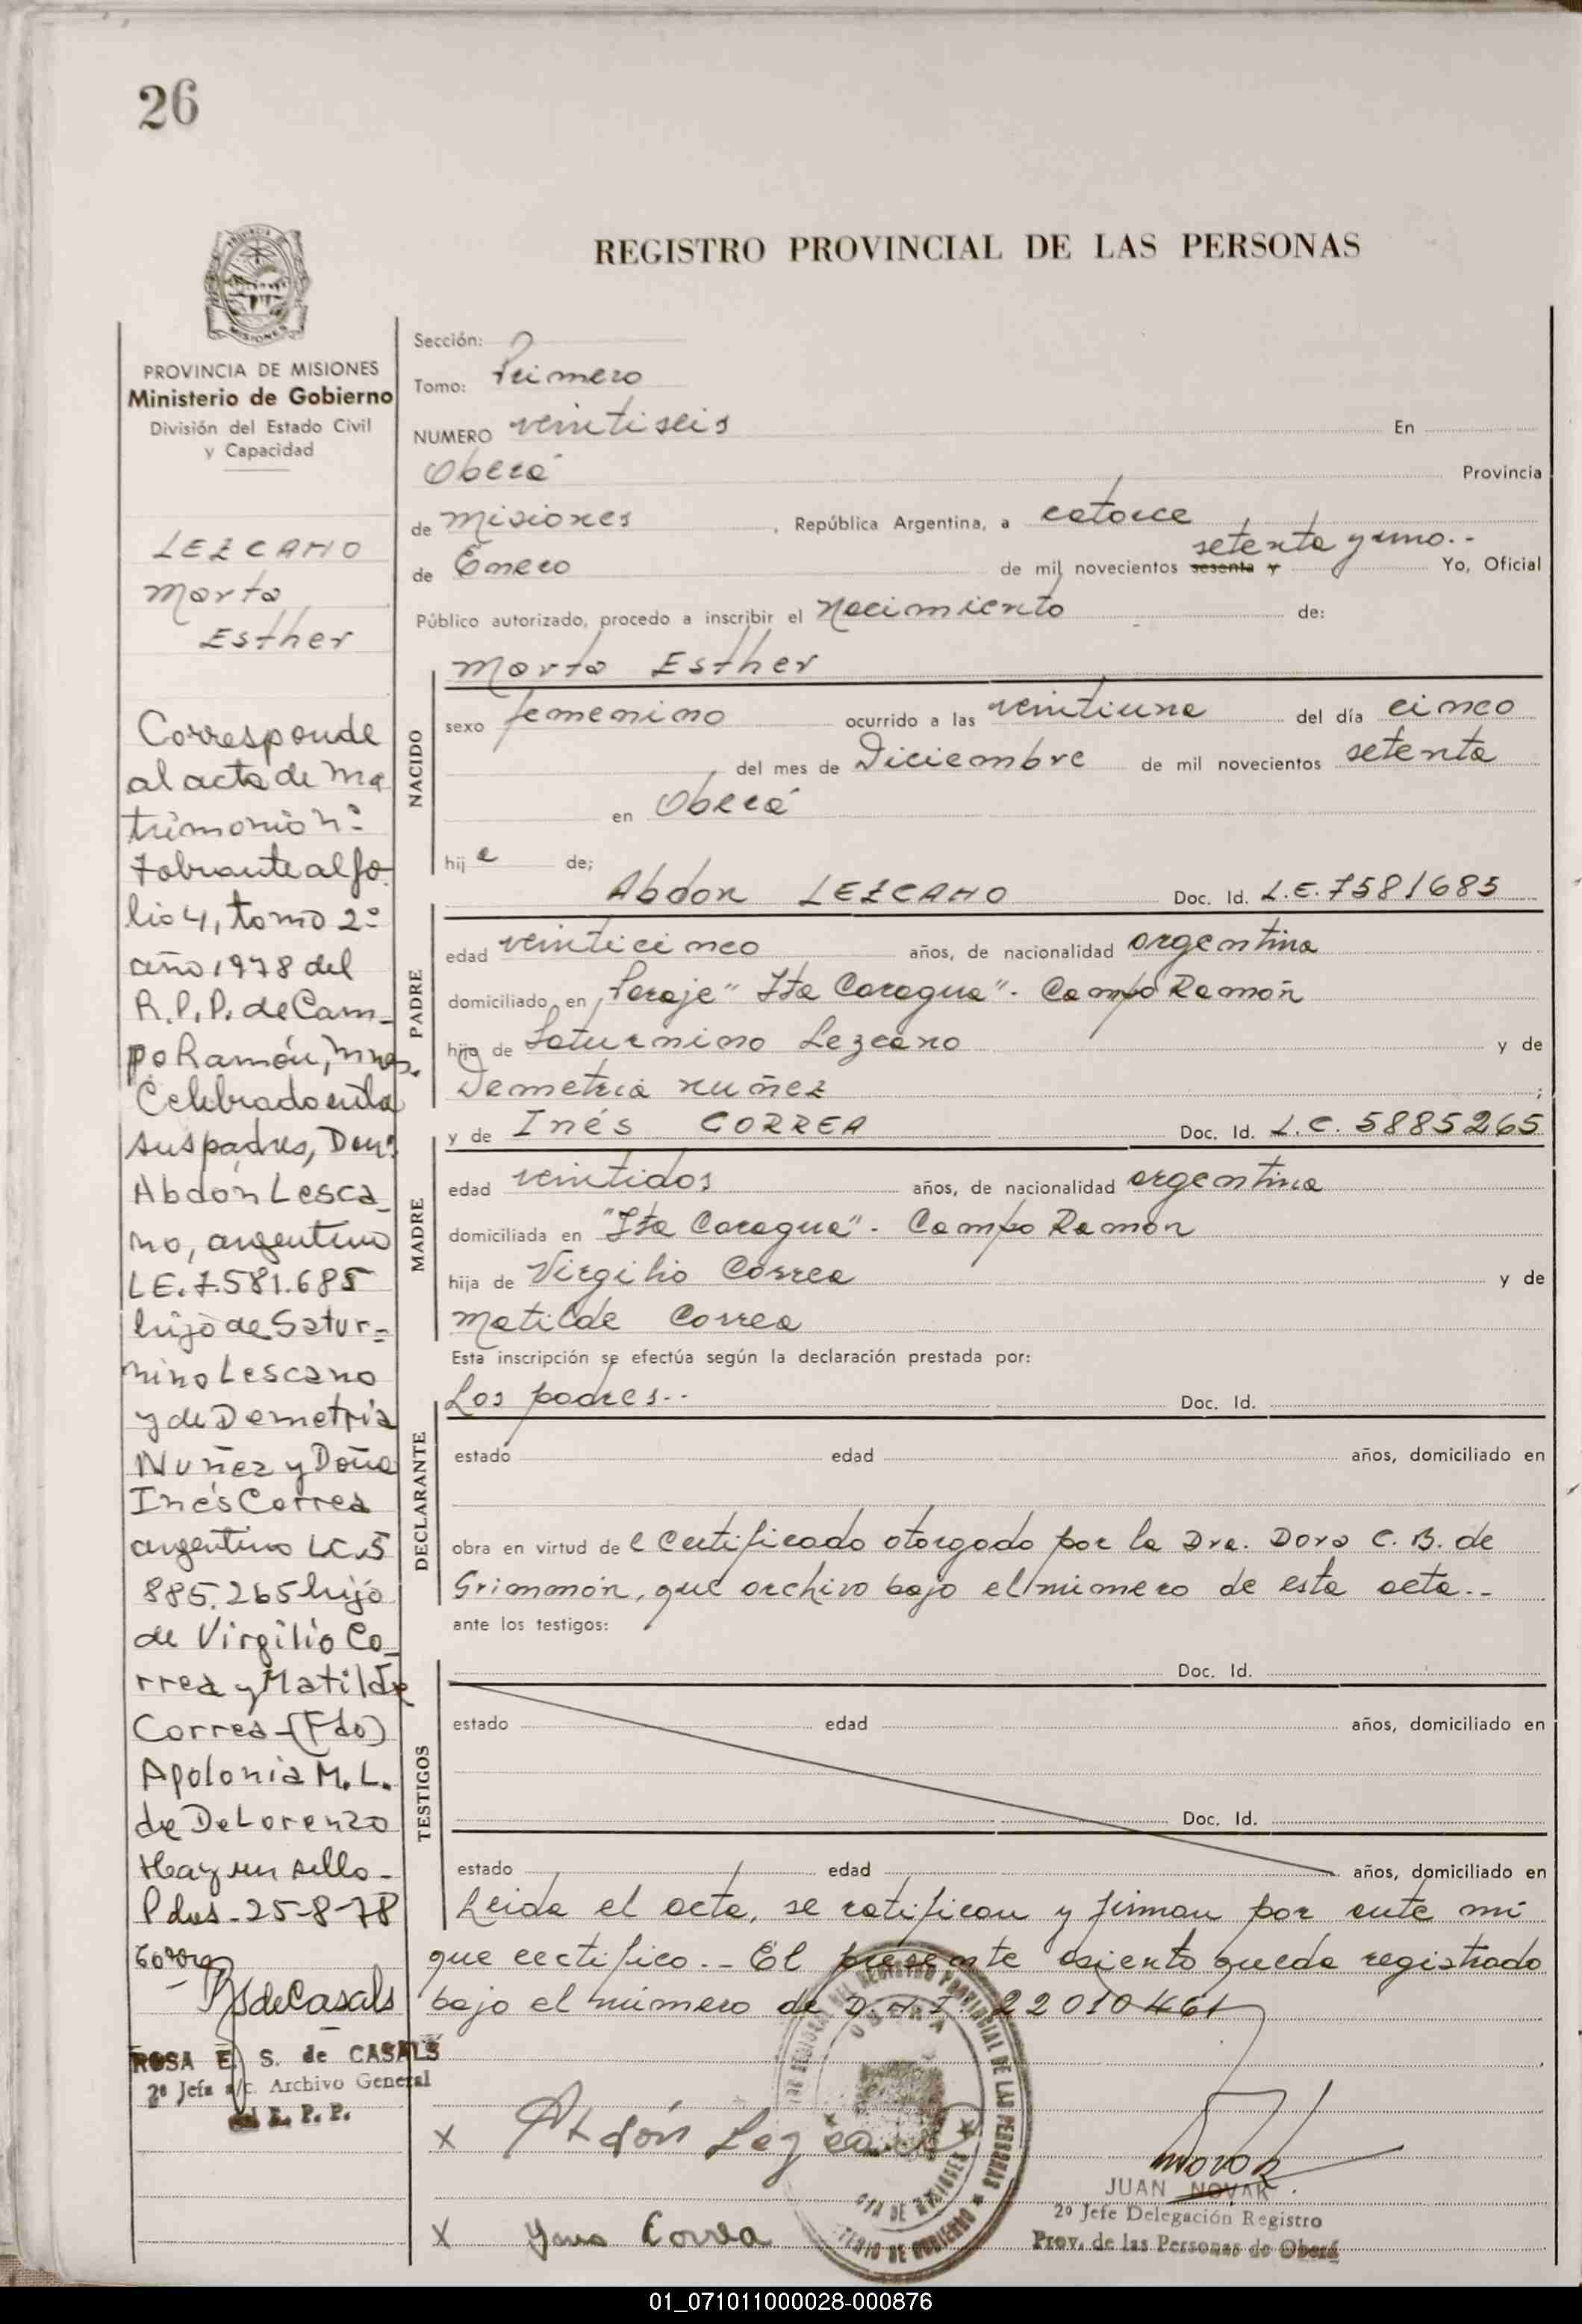 26
REGISTRO PROVINCIAL DE LAS PERSONAS
PROVINCIA DE MISIONES
Ministerio de Gobierno
División del Estado Civil
y Capacidad
LEZCANO
Marta
Esther
Corresponde
al acta de Ma
trimonio nº
7 obrante al fo
lio 4, tomo 2º
año 1978 del
R.P.P. de Cam-
po Ramón, Mnes.
Celebrado entre
sus padres, Don:
Abdón Lesca-
no, argentino
LE. 7.581.685
hijo de Satur=
nino Lescano
y de Demetria
Nuñez y Doña
Inés Correa
argentina LC.5
885.265 hija
de Virgilio Co-
rrea y Matilde
Correa-(Fdo)
Apolonia M. L.
de De Lorenzo
Hay un sello-
Pdas-25-8-78
RSdeCasals
ROSA E. S. de CASALS
2ª Jefa a/c. Archivo General
R. P. P.
Sección:
Tomo: Primero
NUMERO veintiseis En
Oberá Provincia
de Misiones, República Argentina, a catorce
de Enero de mil novecientos sesenta y setenta y uno.- Yo, Oficial
Público autorizado, procedo a inscribir el Nacimiento de:
Marta Esther
NACIDO
sexo femenino ocurrido a las veintiuna del día cinco
del mes de Diciembre de mil novecientos setenta
en Oberá
hij a de;
Abdon LEZCANO Doc. Id. L.E. 7581685
PADRE
edad veinticinco años, de nacionalidad argentina
domiciliado en Paraje "Ita Caragua"- Campo Ramón
hijo de Saturnino Lezcano y de
Demetria Nuñez ;
y de Inés CORREA Doc. Id. L.C. 5885265
MADRE
edad veintidos años, de nacionalidad argentina
domiciliada en "Ita Caragua"- Campo Ramón
hija de Virgilio Correa y de
Matilde Correa
Esta inscripción se efectúa según la declaración prestada por:
Los padres.- Doc. Id.
DECLARANTE
estado edad años, domiciliado en
obra en virtud de l Certificado otorgado por la Dra. Dora C. B. de
Grimmón, que archivo bajo el número de esta acta.-
ante los testigos:
Doc. Id.
TESTIGOS
estado edad años, domiciliado en
Doc. Id.
estado edad años, domiciliado en
Leida el acta, se ratifican y firman por ante mi
que certifico.- El presente asiento queda registrado
bajo el número de D.N.I. 22010461
X Abdón Lezcano
X Ynes Correa
JUAN NOVAK
2º Jefe Delegación Registro
Prov. de las Personas de Oberá
01_071011000028-000876